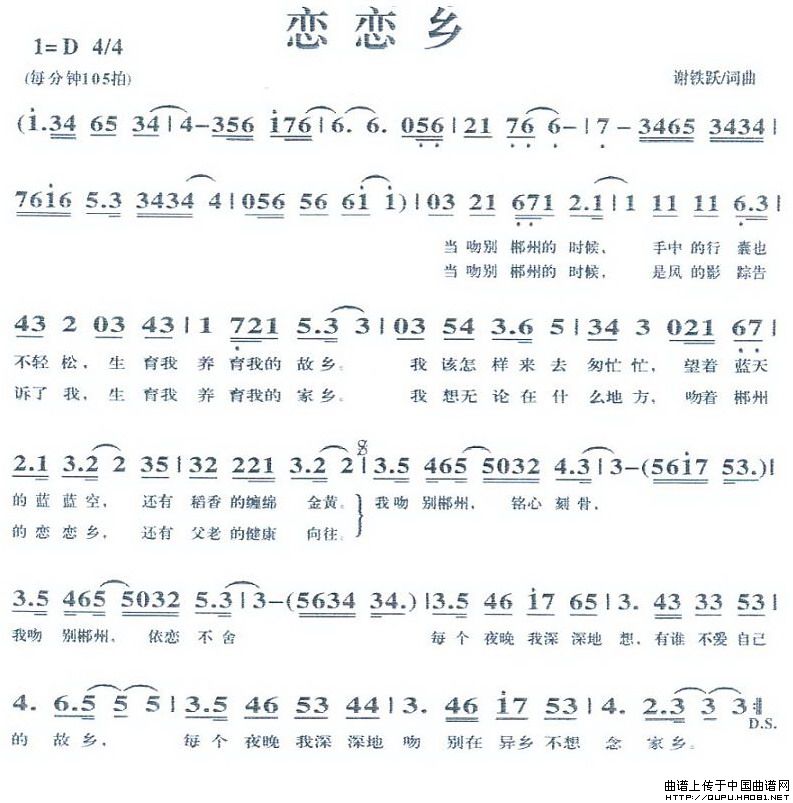 恋恋乡
1=D 4/4
(每分钟105拍)
谢铁跃/词曲
(i.34 65 34|4-356 i76|6. 6. 056|21 76 6-|7 - 3465 3434|
76i6 5.3 3434 4|056 56 6i i)|03 21 671 2.1|1 11 11 6.3|
当吻别 郴州的 时候， 手中的行 囊也
当吻别 郴州的 时候， 是风的影 踪告
43 2 03 43|1 721 5.3 3|03 54 3.6 5|34 3 021 67|
不轻松，生 育我 养 育我的 故乡。 我 该怎 样来去 匆忙忙，望着 蓝天
诉了我，生 育我 养 育我的 家乡。 我 想无 论在什 么地方，吻着 郴州
2.1 3.2 2 35|32 221 3.2 2|3.5 465 5032 4.3|3-(56i7 53.)|
的蓝 蓝空， 还有 稻香的缠绵 金黄。 我吻 别郴州， 铭心 刻骨，
的恋 恋乡， 还有 父老的健康 向往。
3.5 465 5032 5.3|3-(5634 34.)|3.5 46 i7 65|3. 43 33 53|
我吻 别郴州， 依恋 不舍 每个 夜晚 我深 深地 想，有谁 不爱 自己
4. 6.5 5 5|3.5 46 53 44|3. 46 i7 53|4. 2.3 3 3:‖
D.S.
的 故乡， 每个 夜晚 我深 深地 吻 别在 异乡 不想 念 家乡。
曲谱上传于中国曲谱网
HTTP://QUPU.HAO81.NET